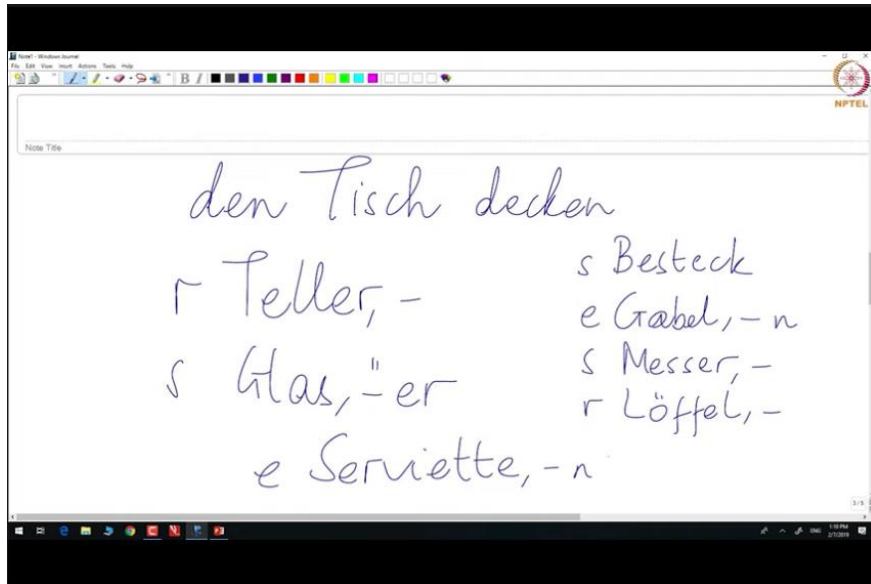 Note1 - Windows Journal
File Edit View Insert Actions Tools Help
B I
NPTEL
Note Title
den Tisch decken
r Teller, -
s Glas, ¨-er
e Serviette, - n
s Besteck
e Gabel, - n
s Messer, -
r Löffel, -
2/5
ENG
1:10 PM
2/7/2019